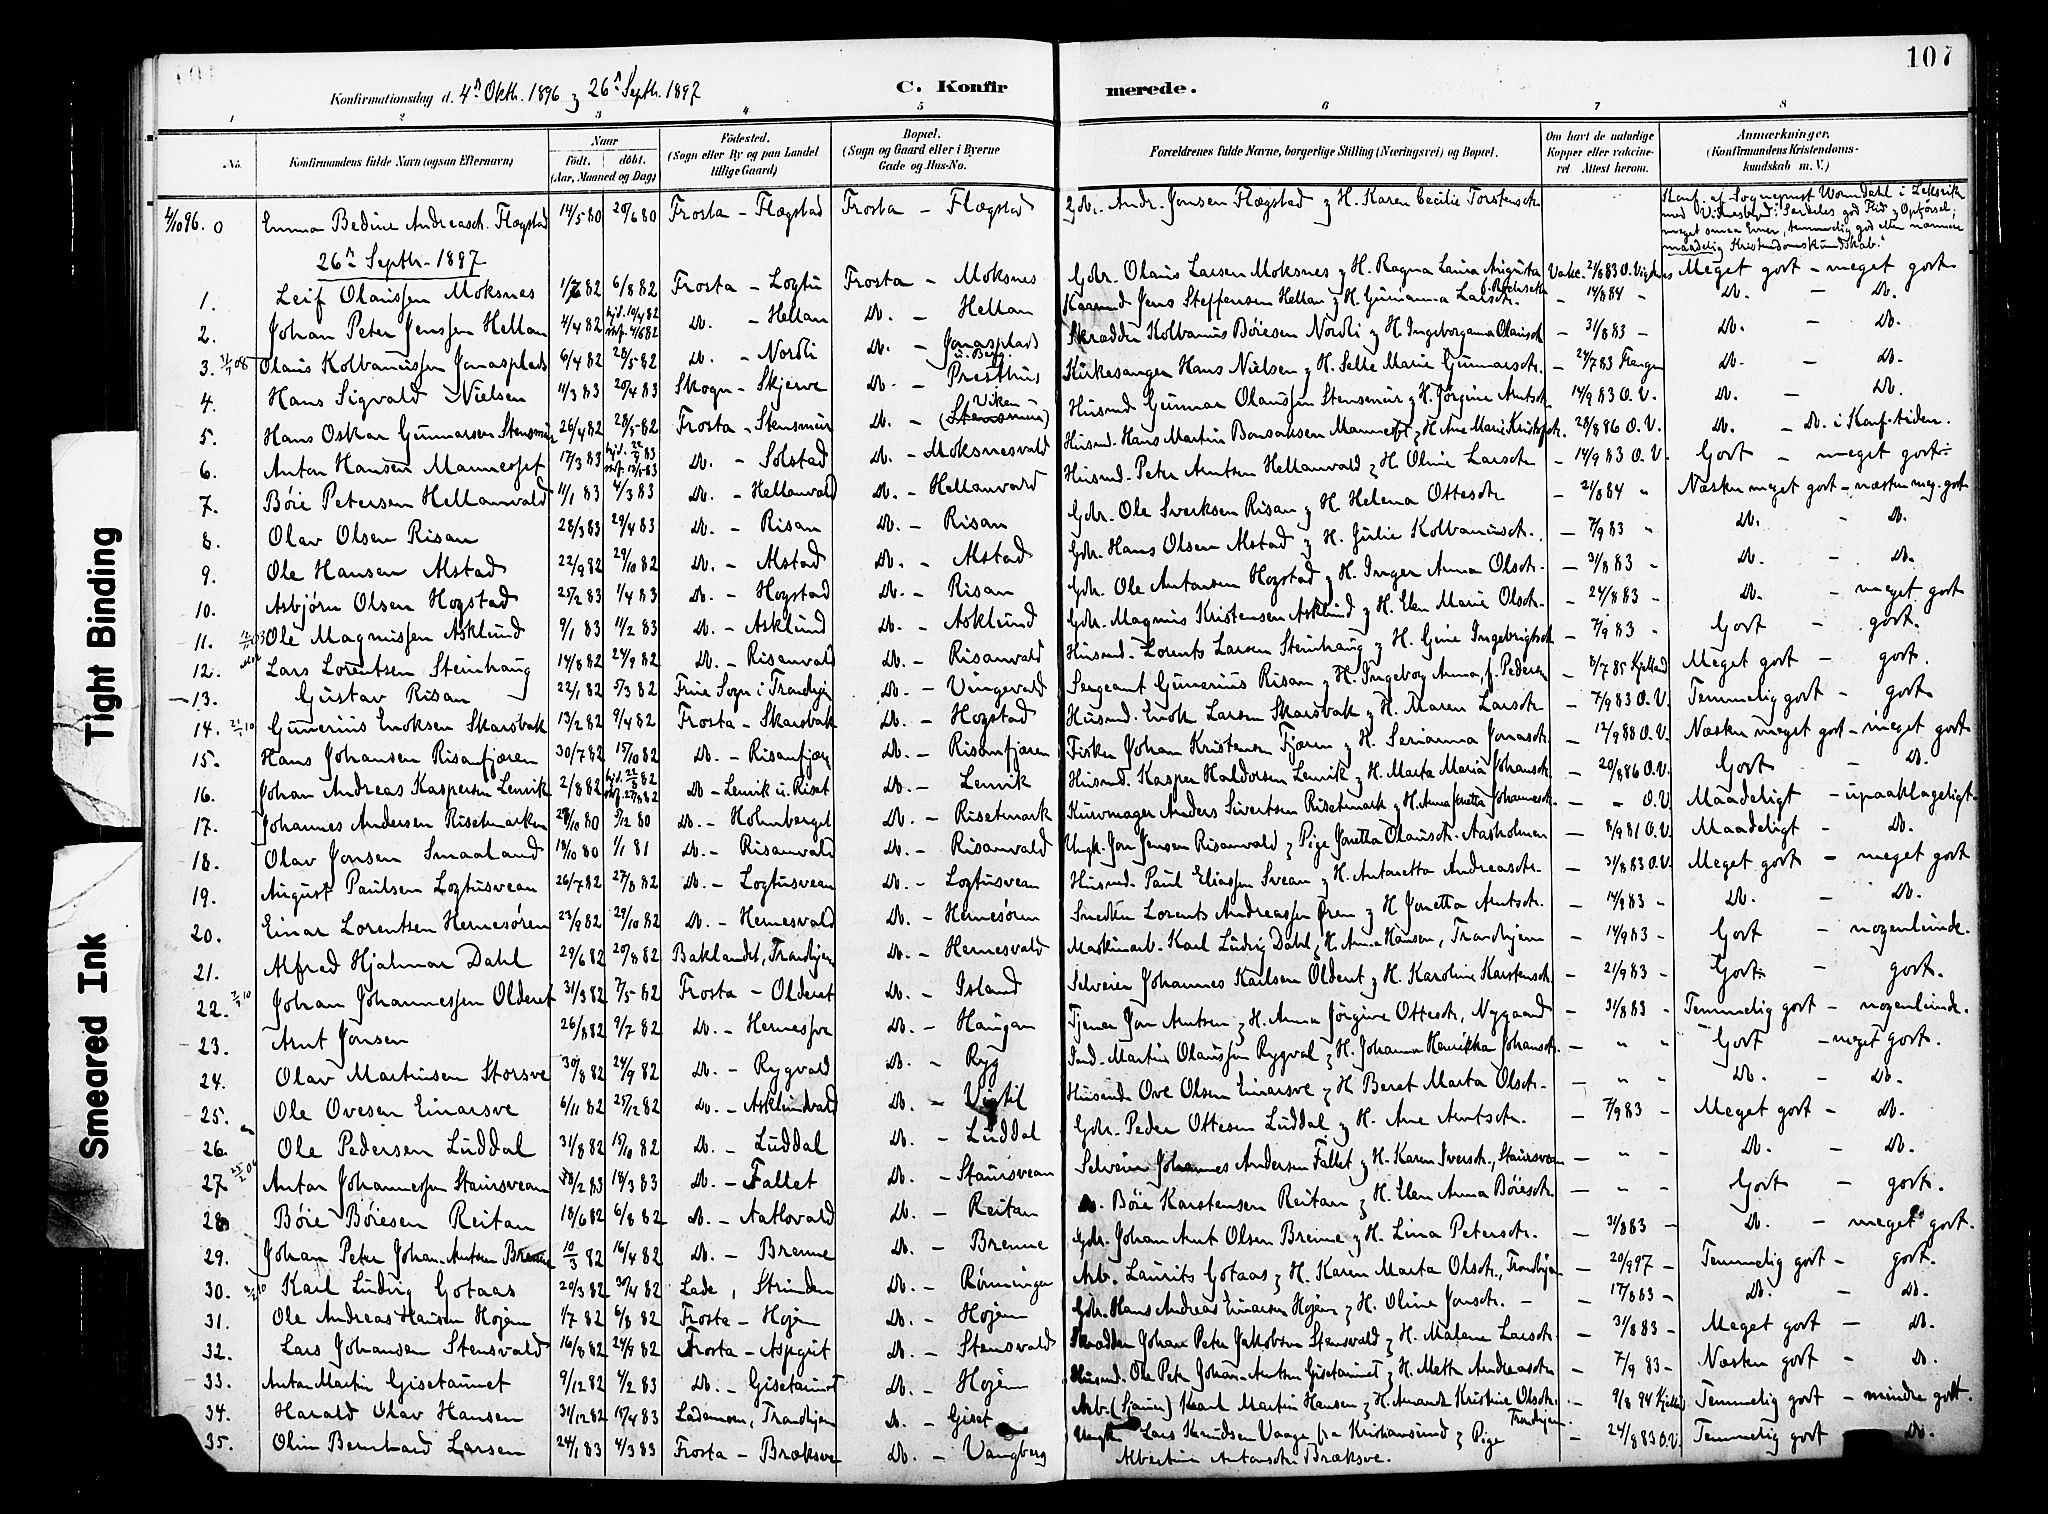 107
Konfirmationsdag d. 4de Oktb. 1896 & 26de Septb. 1897
C. Konfirmerede.
1 2 3 4 5 6 7 8
No. Konfirmandens fulde Navn (ogsaa Efternavn) Naar Født. døbt. (Aar, Maaned og Dag) Fødested. (Sogn eller By og paa Landet tillige Gaard) Bopæl. (Sogn og Gaard eller i Byerne Gade og Hus-No. Forældrenes fulde Navne, borgerlige Stilling (Næringsvei) og Bopæl. Om havt de naturlige Kopper eller vakcineret Attest herom. Anmærkninger. (Konfirmandens Kristendomskundskab m. V.)
4/10 96. 0 Emma Bedine Andreasdt. Flægstad 14/5 80 20/6 80 Frosta - Flægstad Frosta - Flægstad Gbr. Andr. Jonsen Flægstad & H. Karen Cecilie Torstensdt. Konf. af Sogneprest Wormdahl i Leksvik
med Vidnesbyrd: Særdeles god Flid & Opførsel;
meget smaa Evner, temmelig god eller nærmere
maadelig Kristendomskundskab."
26de Septb. 1897
1. Leif Olaussen Moksnes 1/7 82 6/8 82 Frosta - Logtu Frosta - Moksnes Gbr. Olaus Larsen Moksnes & H. Ragna Laura Augusta Vakc. 21/8 83 O. Vigtnes Meget godt - meget godt
2. Johan Peter Jenssen Hellan 4/4 82 hjd. 10/4 82 Do. - Hellan Do. - Hellan Kaarmd Jens Steffensen Hellan & H. Gurianna Larsdt. - 14/8 84 " Do. - Do.
3. Olaus Kolbanussen Jonasplads 6/4 82 28/5 82 Do. - Nordli Do. - Jonasplads u. Berg. Skrædder Kolbanus Bøiesen Nordli & H. Ingeborganna Olausdt - 31/8 83 - Do. - Do.
4. Hans Sigvald Nielsen 11/3 83 20/4 83 Skogn - Skjerve Do. - Presthus Kirkesanger Hans Nielsen & H. Selle Marie Gunnarsdt. - 24/7 83 Do. - Do.
5. Hans Oskar Gunnarsen Stensmur 26/4 82 28/5 82 Frosta - Stensmur Do. - Viken (Stensmur) Husmd Gunnar Olaussen Stensmur & H. Jørgine Arntsdt - 14/9 83 O. V. Do. - Do. i Konf.tiden.
6. Anton Hansen Mannesset 17/3 83 hjd. 22/3 83 Do. - Solstad Do. - Moksnesvald Husmd. Hans Martin Bonsaksen Mannesset & H. Ane Marie Kristofdt. - 28/8 86 O. V. Godt - meget godt
7. Bøie Petersen Hellanvald 11/1 83 4/3 83 Do. - Hellanvald Do. - Hellanvald Husmd. Peter Arntsen Hellanvald & H. Oline Larsdt - 14/9 83 O. V. Næsten meget godt - næsten meg. godt
8. Olav Olsen Risan 28/3 83 29/4 83 Do. - Risan Do. - Risan Gbr. Ole Sverksen Risan & H. Helena Ottesdt - 21/8 84 " Do. - Do.
9. Ole Hansen Alstad 22/9 82 29/10 82 Do. - Alstad Do. - Alstad Gbr. Hans Olsen Alstad & H. Julie Kolbanusdt. - 7/9 83 " Do. - Do.
10. Asbjørn Olsen Hogstad 25/2 83 1/4 83 Do. - Hogstad Do. - Risan Gbr. Ole Antonsen Hogstad & H. Inger Anna Olsdt. - 31/8 83 - Do. - meget godt
11. Ole Magnussen Asklund 9/1 83 11/2 83 Do. - Asklund Do. - Asklund Gbr. Magnus Kristensen Asklund & H. Elen Marie Olsdt. - 24/8 83 - Godt - godt.
12. Lars Lorentsen Steinhaug 14/8 82 24/9 82 Do. - Risanvald Do. - Risanvald Husmd. Lorents Larsen Steinhaug & H. Gine Ingebrigtsdt - 7/9 83 " Meget godt - godt.
13. Gustav Risan 22/1 82 5/3 82 Frue Sogn i Trondhjem Do. - Vingevald Sergeant Gunerius Risan & H. Ingeborg Anna, f. Pedersen - 8/7 85 Kjelland Temmelig godt - godt
14. Gunerius Enoksen Skarsbak 13/2 82 9/4 82 Frosta - Skarsbak Do. - Hogstad Husmd. Enok Larsen Skarsbak & H. Maren Larsdt - 7/9 83 O. V. Næsten meget godt - meget godt
15. Hans Johansen Risanfjæren 30/7 82 15/10 82 Do. - Risanfjær Do. - Risanfjæren Fisker Johan Kristensen Fjæren & H. Serianna Jonasdt. - 12/9 88 O. V. Godt - Do.
16. Johan Andreas Kaspersen Lenvik 2/8 82 Do - Lenvik u. Riset Do. - Lenvik Husmd. Kasper Haldorsen Lenvik & H. Marta Maria Johansdt. - 20/8 86 O. V. Maadeligt - upaaklageligt.
17. Johannes Andersen Risetmarken 28/10 80 5/12 80 Do. - Holmberget Do. - Risetmark Kurvmager Anders Sivertsen Risetmark & H. Anna Jonetta Johannesdt. - " O. V. Maadeligt - Do.
18. Olav Jonsen Smaaland 18/10 80 1/1 81 Do. - Risanvald Do. - Risanvald Ungk. Jon Jensen Risanvald & Pige Jonetta Olausdt. Aasholmen - 8/9 81 O. V. Meget godt - meget godt
19. August Paulsen Logtusvean 26/7 82 27/8 82 Do. - Logtusvean Do. - Logtusvean Husmd. Paul Eliassen Svean & H. Antonetta Andreasdt. - 31/8 83 O. V. Do. - Do.
20. Einar Lorentsen Hernesøren 23/9 82 29/10 82 Do. - Hernesvald Do. - Hernesøren Smed Lorents Andreassen Øren & H Jonetta Arntsdt. - 14/9 83 - Godt - nogenlunde.
21. Alfred Hjalmar Dahl 29/6 82 20/8 82 Baklandet, Trondhjem Do. - Hernesvald Maskinarb. Karl Ludvig Dahl & H. Anna Hansen, Trondhjem - 14/9 83 - Godt - godt.
22. Johan Johannessen Olderet 31/3 82 7/5 82 Frosta - Olderet Do. - Island Selveier Johannes Karlsen Olderet & H. Karoline Karstensdt - 21/9 83 - Temmelig godt - nogenlunde.
23. Arnt Jonsen 26/8 82 9/7 82 Do. - Hernessve Do. - Haugan Tjener Jon Arntsen & H. Anna Jørgine Ottesdt, Nygaard - 31/8 83 - Godt - meget godt.
24. Olav Martinsen Storsve 30/8 82 24/9 82 Do. - Rygvald Do. - Ryg Ind. Martin Olaussen Rygvald & H. Johanna Henrikka Johansdt. - " " Do. - Do.
25. Ole Ovesen Einarsve 6/11 82 25/12 82 Do. - Asklundvald Do. - Vigtil Husmd Ove Olsen Einarsve & H. Beret Marta Olsdt. - " - Meget godt - Do.
26. Ole Pedersen Luddal 31/8 82 15/10 82 Do. - Luddal Do. - Luddal Gbr. Peder Ottesen Luddal & H. Ane Arntsdt. - 7/9 83 - Do. - Do.
27. Anton Johannessen Staursvean 28/2 83 18/3 83 Do. - Fallet Do. - Staursvean Selveier Johannes Andersen Fallet & H. Karen Iversdt., Staursvean - " - Godt - godt.
28 Bøie Bøiesen Reitan 18/6 82 6/8 82 Do. - Aatlovald Do. - Reitan Do. Bøie Karstensen Reitan & H. Elen Anna Bøiesdt. - " - Do. - meget godt.
29. Johan Peter Johan-Arntsen Brenne 10/3 82 16/4 82 Do. - Brenne Do. - Brenne Gbr. Johan Arnt Olsen Brenne & H. Lina Petersdt. - 31/8 83 - Temmelig godt - godt.
30. Karl Ludvig Gotaas 20/3 82 30/4 82 Lade, Strinden Do. - Rønningen Arb. Laurits Gotaas & H. Karen Marta Olsdt., Trondhjem - 20/9 97 - Do. - Do.
31. Ole Andreas Hansen Hojem 1/7 82 6/8 82 Frosta - Hojem Do. - Hojem Gbr. Hans Andreas Einarsen Hojem & H. Oline Jonsdt. - 17/8 83 - Meget godt - Do.
32. Lars Johansen Stensvald 16/8 82 24/9 82 Frosta - Aspgut Do. - Stensvald Skrædder Johan Peter Jakobsen Stensvald & H. Malene Larsdt. - 31/8 83 - Næsten godt - Do.
33. Anton Martin Gisetaunet 9/12 82 4/2 83 Do. - Gisetaunet Do. - Hojem Husmd. Ole Peter Johan-Arntsen Gisetaunet & H. Meth Andreasdt - 7/9 83 - Temmelig godt - mindre godt.
34. Harald Olav Hansen 31/12 82 15/4 83 Lademoen, Trondhjem Do. - Giset Arb. (Sjauer) Karl Martin Hansen & H. Amanda Kristine Olsdt. Trondhjem. - 9/8 84 Temmelig godt - Do.
35. Olin Bernhard Larsen 24/1 83 4/3 83 Frosta - Bræksve Do. - Vangberg Ungk. Lars Knudsen Vaage fra Kristiansund & Pige - 24/8 83 O. V.
Albertine Antonsdt. Bræksve.
Tight Binding
Smeared Ink